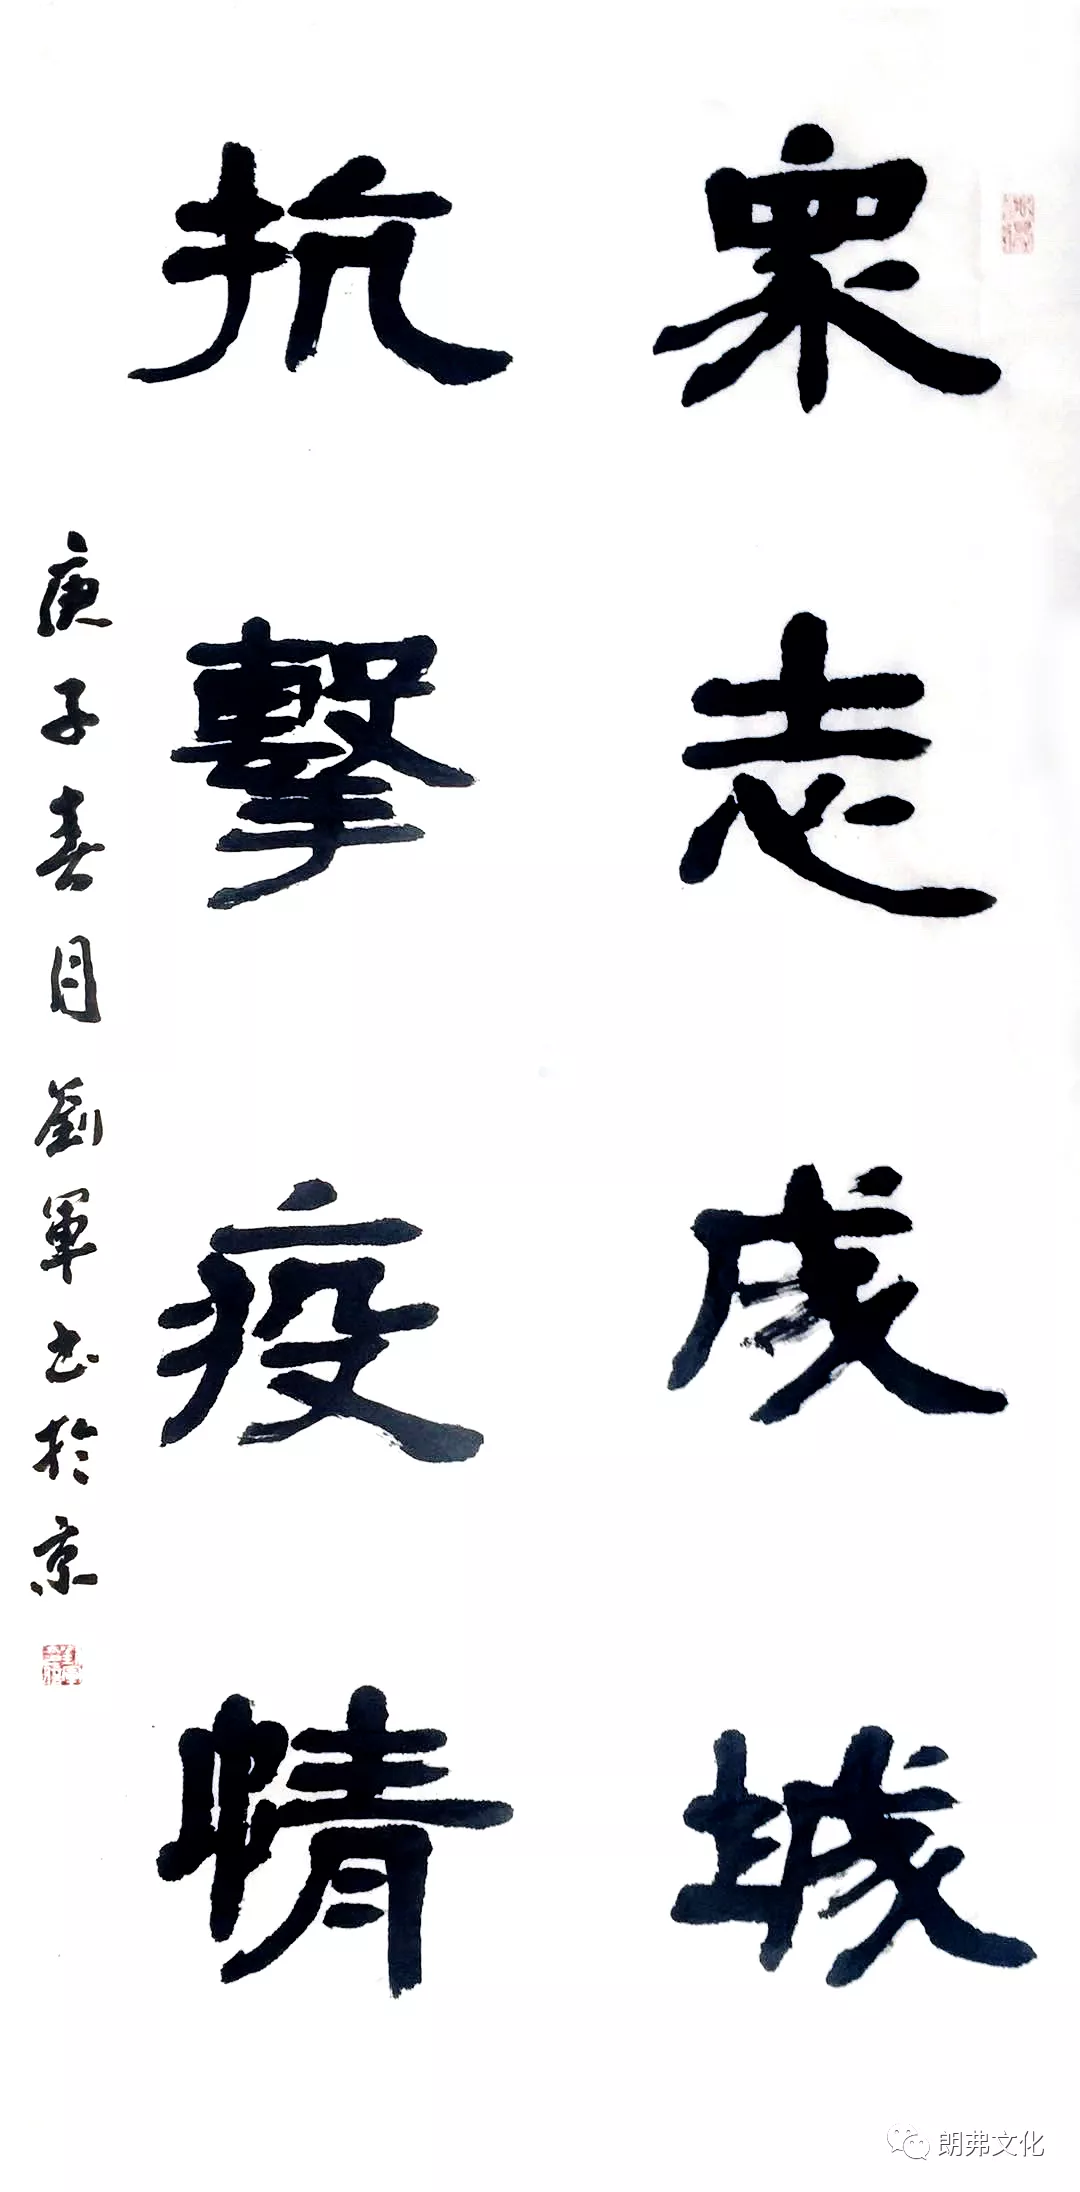 眾志成城
抗擊疫情
庚子春月劉軍書於京
朗弗文化